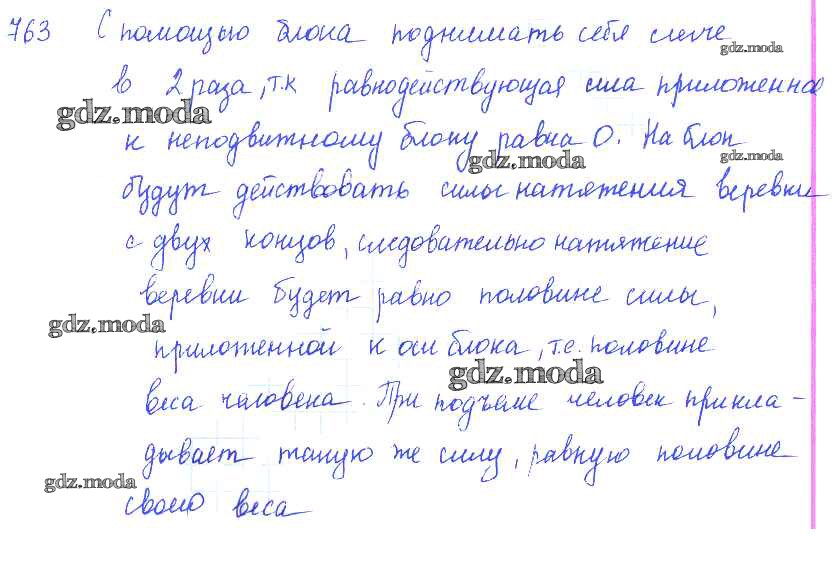 763 С помощью блока поднимать себя легче
gdz.moda
в 2 раза, т.к равнодействующая сила приложенная
gdz.moda
к неподвижному блоку равна 0. На блок
gdz.moda
gdz.moda
будут действовать силы натяжения веревки
с двух концов, следовательно натяжение
веревки будет равно половине силы,
gdz.moda
приложенной к оси блока, т.е. половине
gdz.moda
веса человека. При подъеме человек прикла-
дывает такую же силу, равную половине
gdz.moda
своего веса